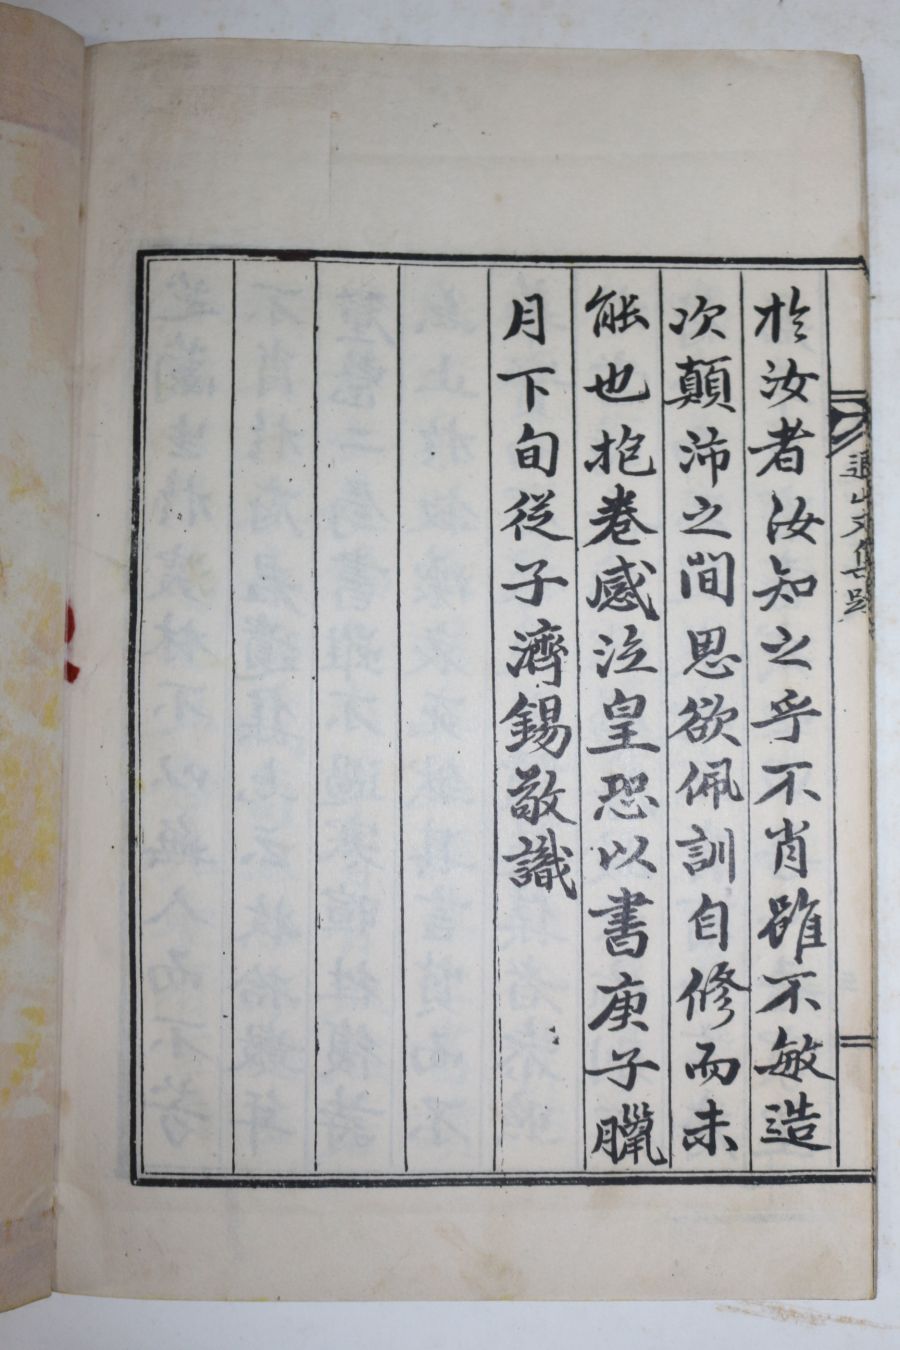 於汝者汝知之乎不肖雖不敏造
次顛沛之間思欲佩訓自修而未
能也抱卷感泣皇恐以書庚子臘
月下旬從子濟錫敬識
山文集跋